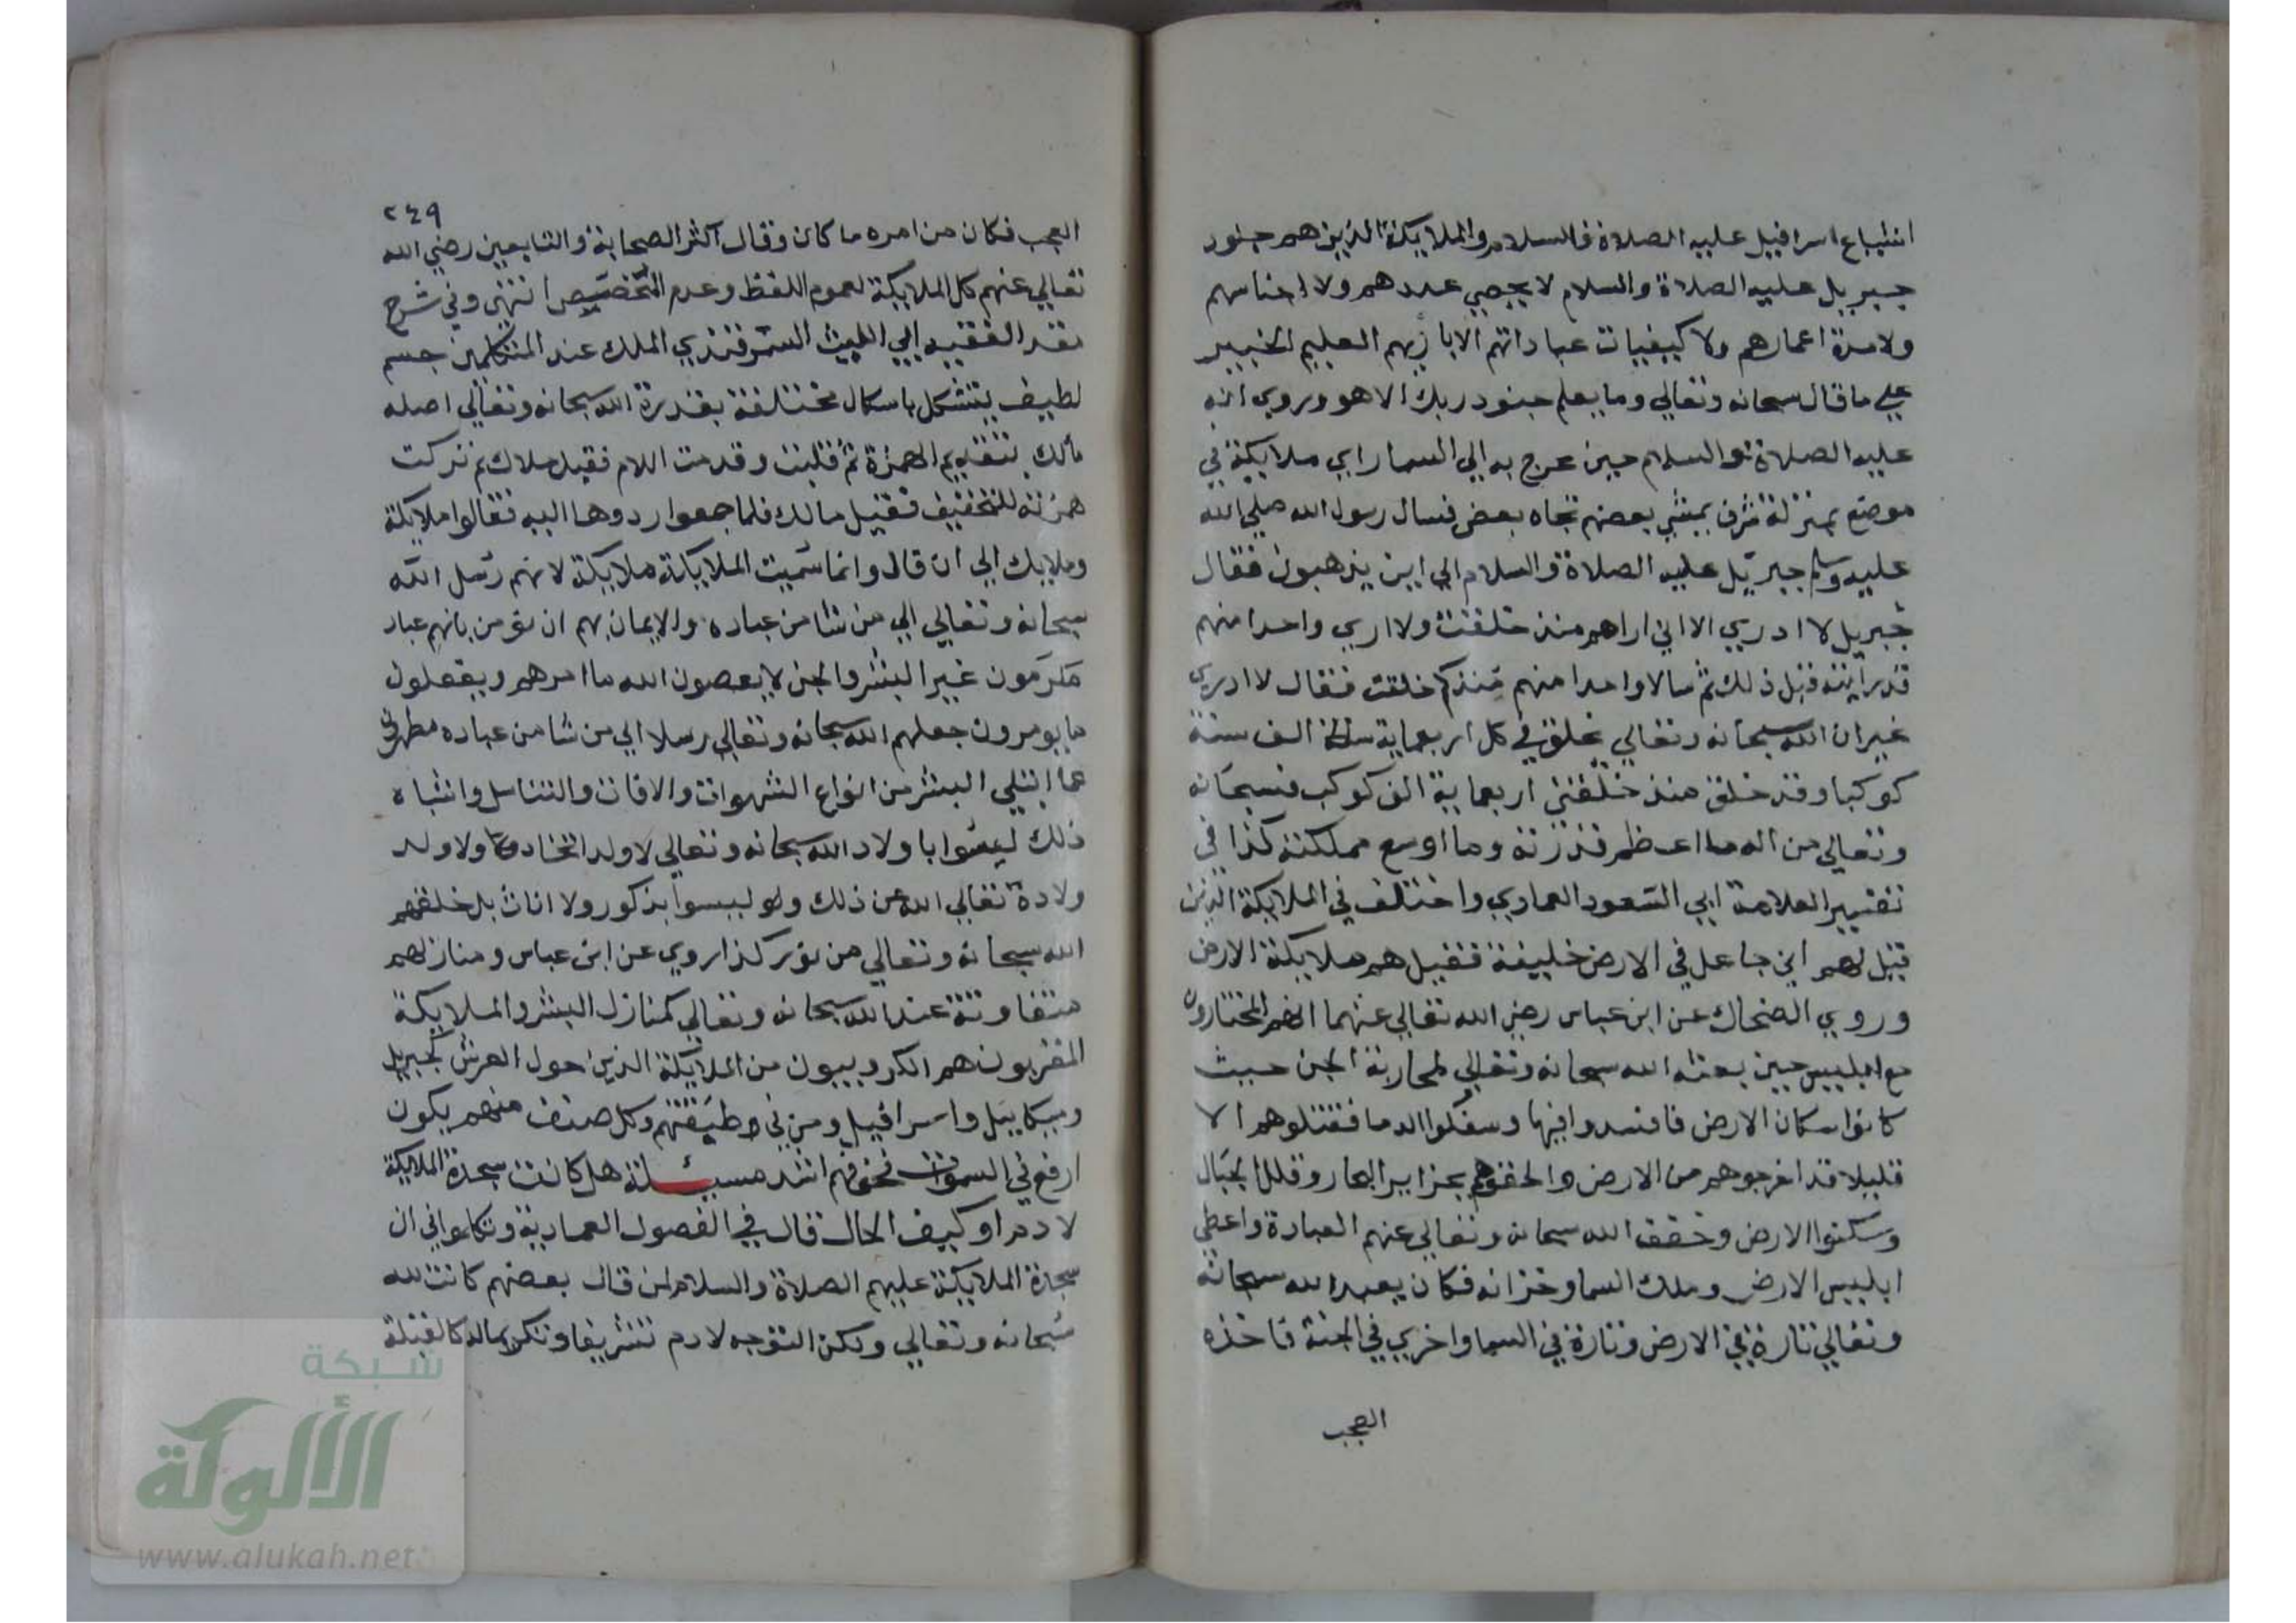 اشياع اسرافيل عليه الصلاة والسلام والملايكة الذين هم جنود
جبريل عليه الصلاة والسلام لا يحصي عددهم ولا اجناسهم
ولا مدة اعمارهم ولا كيفيات عباداتهم الا باريهم العليم الخبير
علي ما قال سبحانه وتعالي وما يعلم جنود ربك الا هو وروي انه
عليه الصلاة والسلام حين عرج به الي السما راي ملايكة في
موضع بمنزلة شرف يمشي بعضهم تجاه بعض فسال رسول الله صلي الله
عليه وسلم جبريل عليه الصلاة والسلام الي اين يذهبون فقال
جبريل لا ادري الا اني اراهم منذ خلقت ولا اري واحدا منهم
قد رايته قبل ذلك ثم سالا واحدا منهم منذ كم خلقت فقال لا ادري
غير ان الله سبحانه وتعالي يخلق في كل اربعماية الف سنة
كوكبا وقد خلق منذ خلقني اربعماية الف كوكب فسبحانه
وتعالي من اله ما اعظم قدرته وما اوسع مملكته كذا في
تفسير العلامة ابي السعود العمادي واختلف في الملايكة الذين
قيل لهم اني جاعل في الارض خليفة فقيل هم ملايكة الارض
وروي الضحاك عن ابن عباس رضي الله تعالي عنهما انهم المختارون
مع ابليس حين بعثه الله سبحانه وتعالي لمحاربة الجن حيث
كانوا سكان الارض فافسدوا فيها وسفكوا الدما فقتلوهم الا
قليلا قد اخرجوهم من الارض والحقوهم بجزاير البحار وقلل الجبال
وسكنوا الارض وخفف الله سبحانه وتعالي عنهم العبادة واعطي
ابليس الارض وملك السما وخزانه فكان يعبد الله سبحانه
وتعالي تارة في الارض وتارة في السما واخري في الجنة فاخذه
العجب
٢٤٩
العجب فكان من امره ما كان وقال اكثر الصحابة والتابعين رضي الله
تعالي عنهم كل الملايكة لعموم اللفظ وعدم التخصيص انتهي وفي شرح
الفقيه ابي الليث السمرقندي الملك عند المتكلمين جسم
لطيف يتشكل باشكال مختلفة بقدرة الله سبحانه وتعالي اصله
مالك بتقديم الهمزة ثم قلبت وقدمت اللام فقيل ملاك ثم تركت
همزته للتخفيف فقيل مالك فلما جمعوا ردوها اليه فقالوا ملايكة
وملايك الي ان قال وانما سميت الملايكة ملايكة لانهم رسل الله
سبحانه وتعالي الي من شا من عباده والايمان بهم ان نؤمن بانهم عباد
مكرمون غير البشر والجن لا يعصون الله ما امرهم ويفعلون
ما يومرون جعلهم الله سبحانه وتعالي رسلا الي من شا من عباده مطهرين
عما ابتلي البشر من انواع الشهوات والافات والتناسل واشباه
ذلك ليسوا باولاد الله سبحانه وتعالي لا ولد اتخاد ولا ولد
ولادة تعالي الله عن ذلك وليسوا بذكور ولا اناث بل خلقهم
الله سبحانه وتعالي من نور كذا روي عن ابن عباس ومنازلهم
متفاوتة عند الله سبحانه وتعالي كمنازل البشر والملايكة
المقربون هم الكروبيون من الملايكة الذين حول العرش كجبريل
وميكاييل واسرافيل ومن في وطيفتهم وكل صنف منهم يكون
ارفع في السموات فخوفهم اشد مسيلة هل كانت سجدة الملايكة
لادم او كيف الحال قال في الفصول العمادية وتكلموا في ان
سجدة الملايكة عليهم الصلاة والسلام لمن قال بعضهم كانت لله
سبحانه وتعالي ولكن التوجه لادم تشريفا وتكريما له كالقبلة
شبكة
الألوكة
www.alukah.net